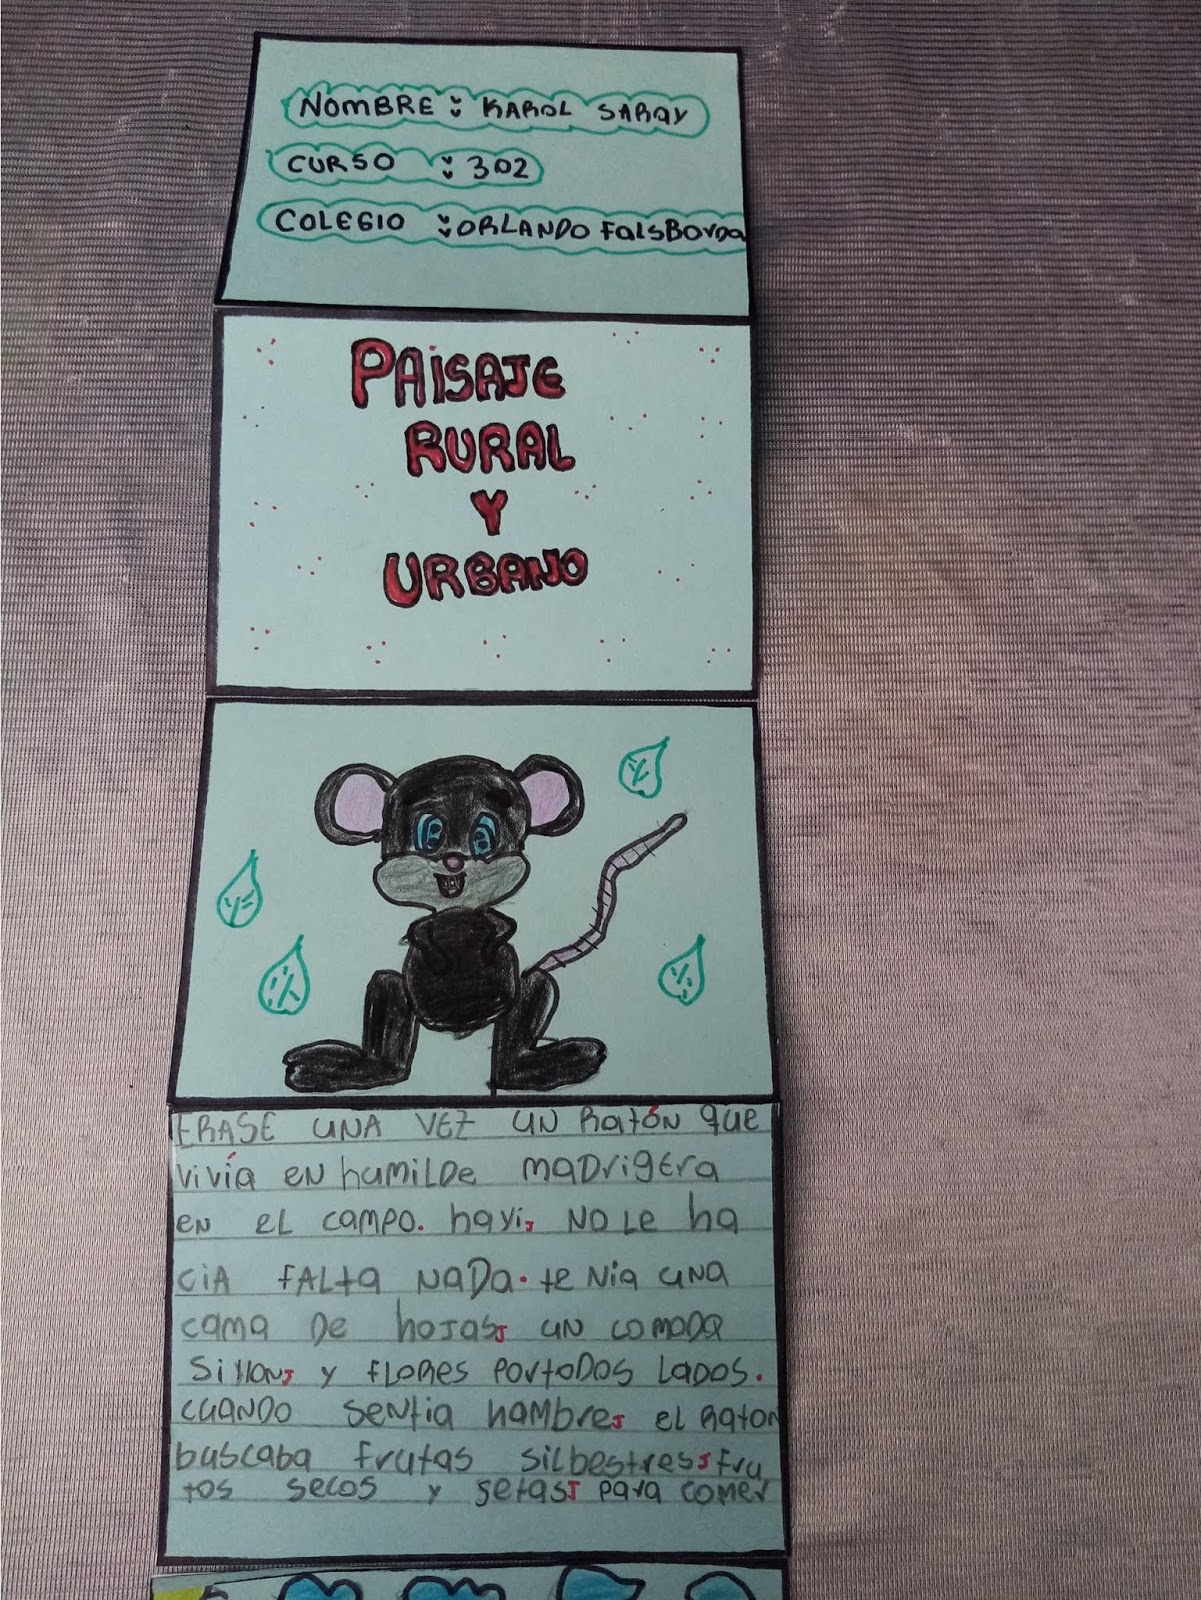 NOMBRE : KAROL SARAY
CURSO : 302
COLEGIO : ORLANDO FalsBorda
PAISAJE
RURAL
Y
URBANO
ERASE UNA VEZ UN Ratón que
vivía EN humiLDE maDrigEra
EN EL campo. hayi, NO LE ha
CiA fALta NaDa. te Nia uNa
cama DE hojas, uN comoDa
SillON, y fLORES PORtoDOS LaDOS.
cuaNDO sentia hambre, EL RatoN
buscaba frutas silbestres, fru
tos secos y setas, para comer